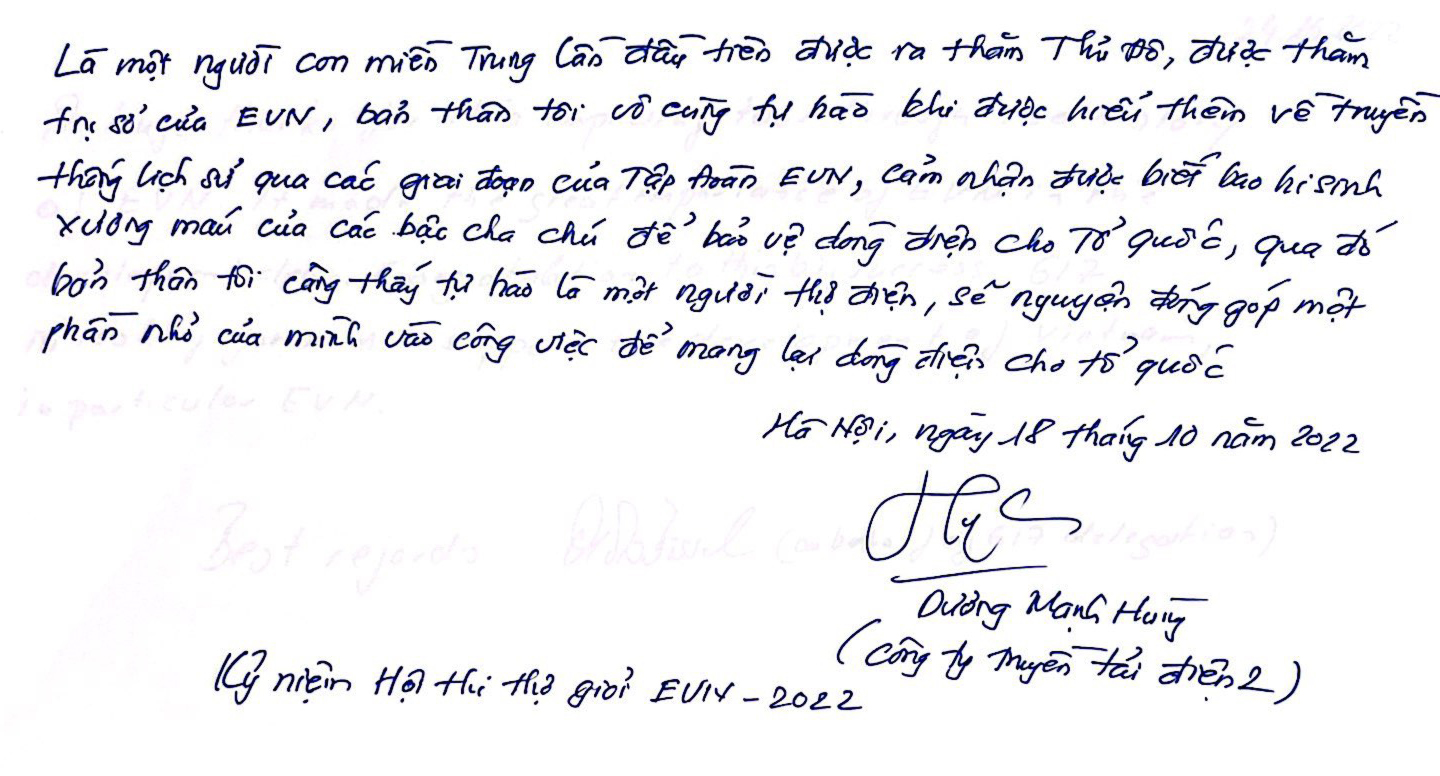 Là một người con miền Trung lần đầu tiên được ra thăm Thủ Đô, được thăm
trụ sở của EVN, bản thân tôi vô cùng tự hào khi được hiểu thêm về truyền
thống lịch sử qua các giai đoạn của Tập đoàn EVN, cảm nhận được biết bao hi sinh
xương máu của các bậc cha chú để bảo vệ dòng điện cho Tổ quốc, qua đó
bản thân tôi càng thấy tự hào là một người thợ điện, sẽ nguyện đóng góp một
phần nhỏ của mình vào công việc để mang lại dòng điện cho tổ quốc
in particular EVN.
Hà Nội, ngày 18 tháng 10 năm 2022
Best regards
delegation)
Dương Mạnh Hùng
(Công ty truyền tải điện 2)
Kỷ niệm Hội thi thợ giỏi EVN - 2022